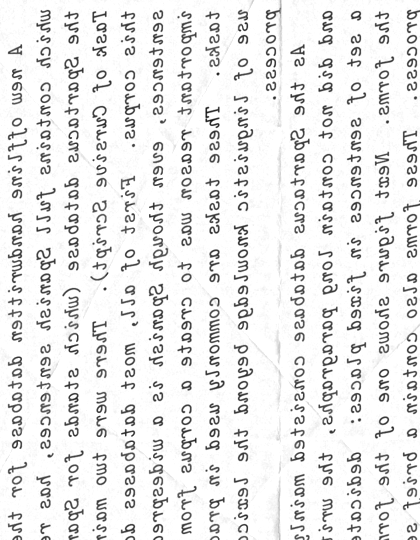 A new offline handwritten database for the
which contains full Spanish sentences, has re
the Spartacus database (which stands for Spa
Task of Cursive Script). There were two main
this corpus. First of all, most databases do
sentences, even though Spanish is a widespre
important reason was to create a corpus from
tasks. These tasks are commonly used in prac
use of linguistic knowledge beyond the lexico
process.
As the Spartacus database consisted mainly
and did not contain long paragraphs, the wri
a set of sentences in fixed places: dedicate
the forms. Next figure shows one of the form
process. These forms also contain a brief s